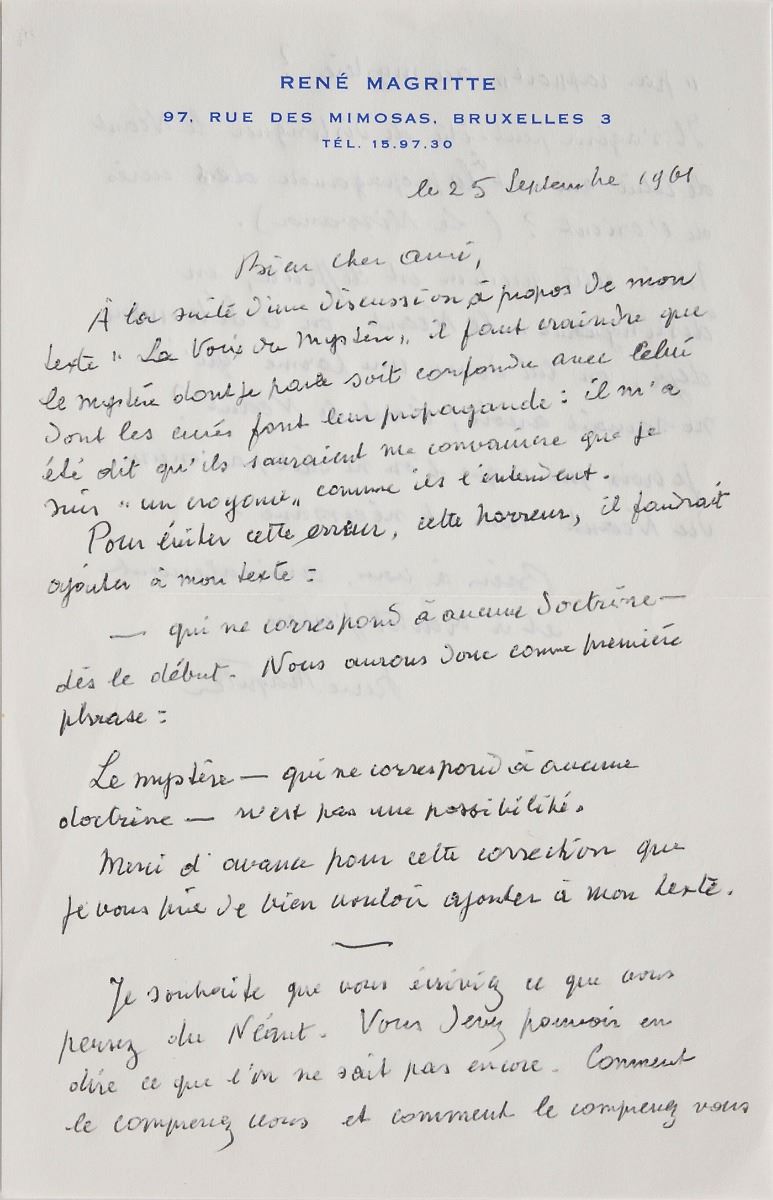 RENÉ MAGRITTE
97, RUE DES MIMOSAS, BRUXELLES 3
TÉL. 15.97.30
le 25 Septembre 1961
Bien cher ami,
À la suite d'une discussion à propos de mon
texte "La Voix du Mystère", il faut craindre que
le mystère dont je parle soit confondu avec celui
dont les curés font leur propagande : il m'a
été dit qu'ils sauraient me convaincre que je
suis "un croyant" comme ils l'entendent.
Pour éviter cette erreur, cette horreur, il faudrait
ajouter à mon texte :
— qui ne correspond à aucune doctrine —
dès le début. Nous aurons donc comme première
phrase :
Le mystère — qui ne correspond à aucune
doctrine — n'est pas une possibilité.
Merci d'avance pour cette correction que
je vous prie de bien vouloir ajouter à mon texte.
Je souhaite que vous écriviez ce que vous
pensez du Néant. Vous devez pouvoir en
dire ce que l'on ne sait pas encore. Comment
le comprenez vous et comment le comprenez vous